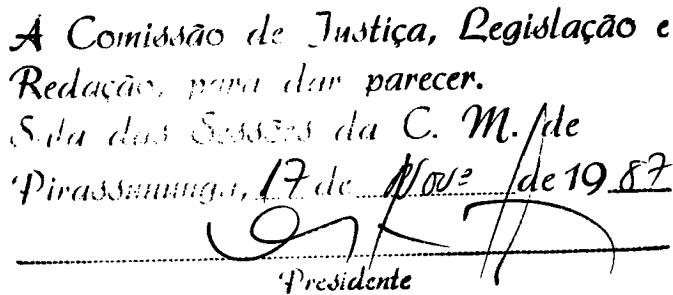 À Comissão de Justiça, Legislação e
Redação, para dar parecer.
Sala das Sessões da C. M. de
Pirassununga, 17 de Novº de 1987
Presidente